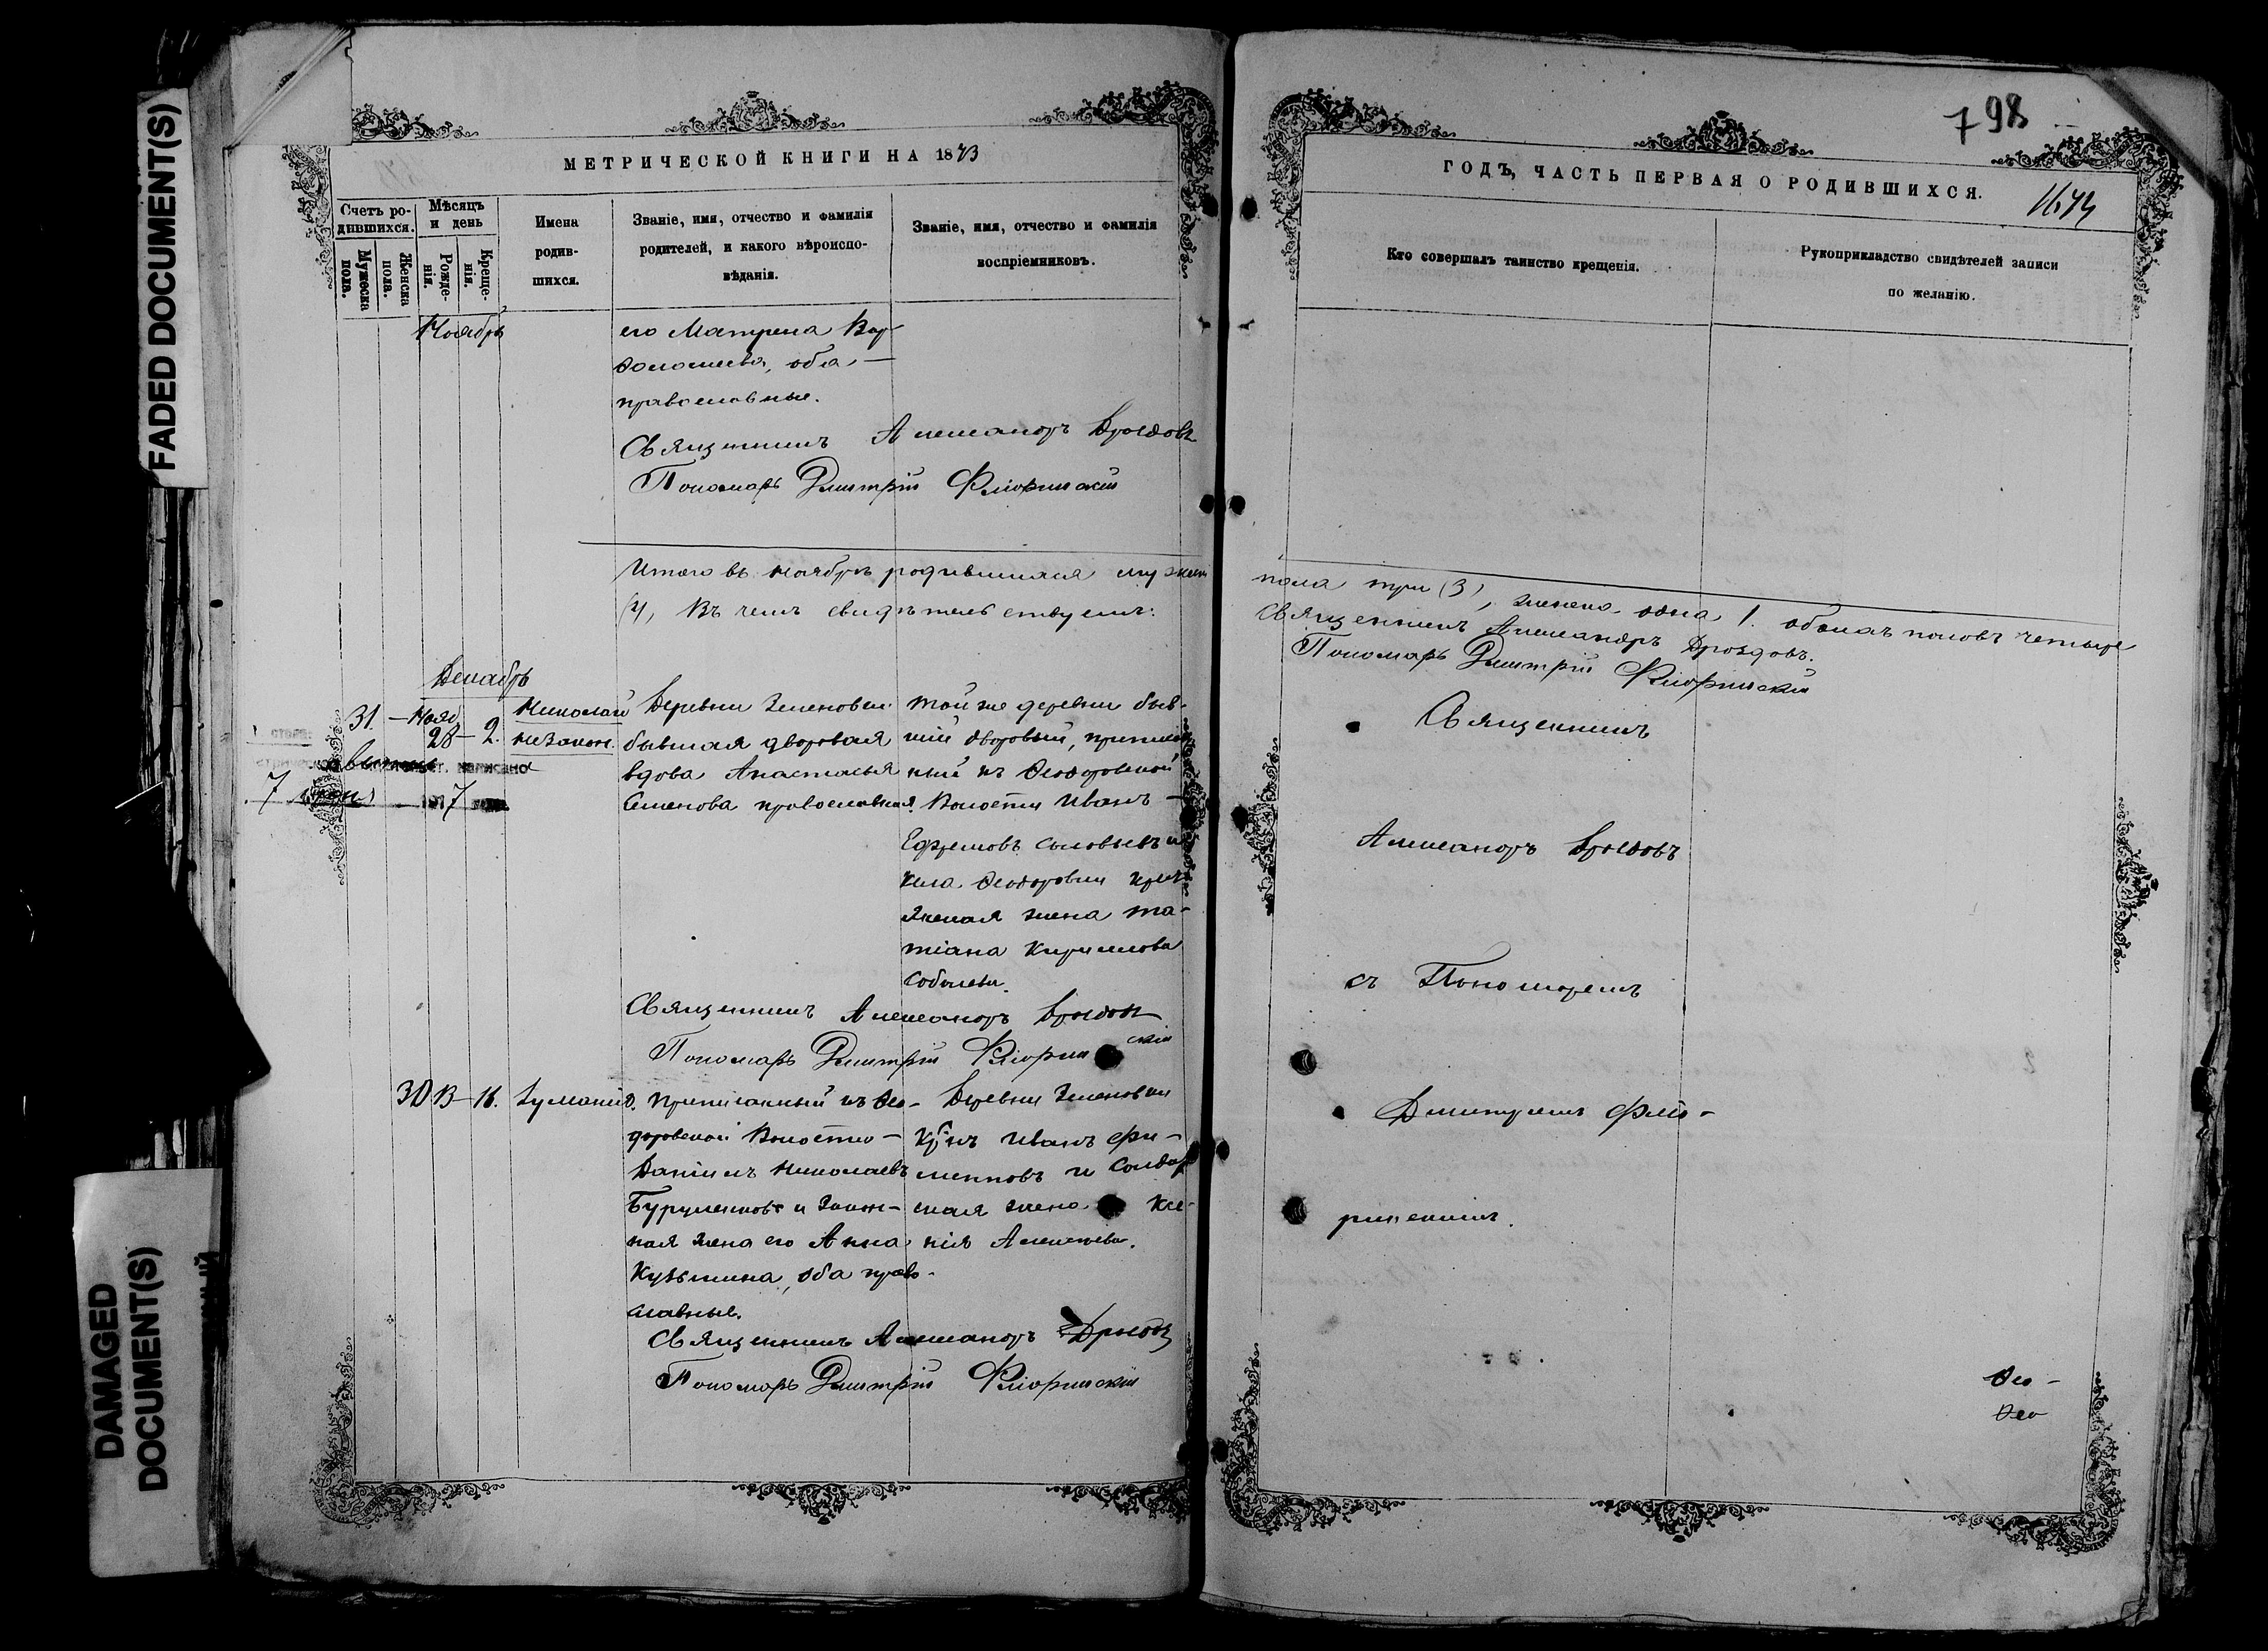 FADED DOCUMENT(S)
DAMAGED
DOCUMENT(S)
МЕТРИЧЕСКОЙ КНИГИ НА 1873
Счетъ ро-
дившихся.
Мужеска
пола.
Женска
пола.
Мѣсяцъ
и день
Рожде-
нія.
Креще-
нія.
Имена
родив-
шихся.
Званіе, имя, отчество и фамилія
родителей, и какого вѣроиспо-
вѣданія.
Званіе, имя, отчество и фамилія
воспріемниковъ.
Ноябрь
его Матрена Вар-
ѳоломеева, оба
православные.
Священникъ Александръ Дроздовъ
Пономарь Дмитрій Фліоринскій
Итого въ ноябрѣ родившихся мужеск
(4), Въ чемъ свидѣтельствуемъ:
Декабрь
31. — Нояб.
28 — 2.
Николай
незакон.
Деревни Зеленовки
бывшая дворовая
вдова Анастасья
Семенова православная.
той же деревни быв-
шій дворовый, приписан
ный къ Ѳеодоровской
Волости Иванъ —
Ефремовъ Соловьевъ и
села Ѳеодоровки крест
янская жена Та-
тіана Кириллова
Соболева.
написано
7 1917
Священникъ Александръ Дроздовъ
Пономарь Дмитрій Фліоринскій
30 13 — 16.
Іуліанія.
Приписанный къ Ѳео-
доровской Волости —
Даніилъ Николаевъ
и закон-
ная жена его Анна
Кузьмина, оба право-
славные.
Деревни Зеленовки
кр-нъ Иванъ Фи-
липповъ и солдат
ская жена Ксе-
нія Алексѣева.
Священникъ Александръ Дроздовъ
Пономарь Дмитрій Фліоринскій
798
ГОДЪ, ЧАСТЬ ПЕРВАЯ О РОДИВШИХСЯ.
Кто совершалъ таинство крещенія.
Рукоприкладство свидѣтелей записи
по желанію.
пола три (3), женска одна 1. обоихъ половъ четыре
Священникъ Александръ Дроздовъ.
Пономарь Дмитрій Фліоринскій
Священникъ
Александръ Дроздовъ
съ Пономаремъ
Дмитріемъ Фліо-
ринскимъ.
Ѳео-
Ѳео